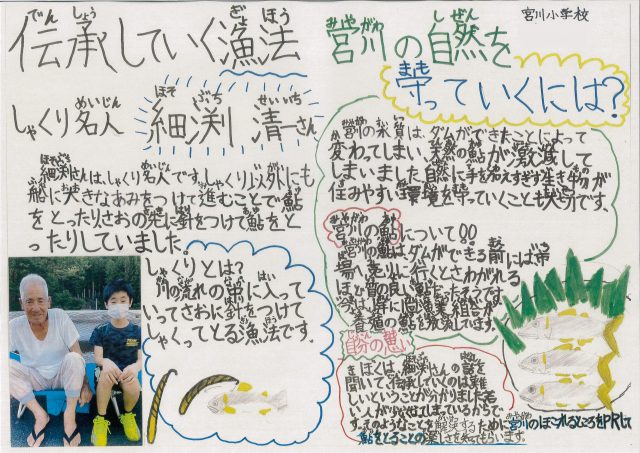 宮川小学校
伝承していく漁法
でん しょう ぎょ ほう
しゃくり名人 細渕 清一さん
めいじん ほそ ぶち せいいち
細渕さんは、しゃくり名人です。しゃくり以外にも
船に大きなあみをつけて進むことで鮎
をとったりさおの先に針をつけて鮎をと
ったりしていました。
しゃくりとは?
川の流れの中に入って
いってさおに針をつけて
しゃくってとる漁法です。
宮川の自然を
みやがわ しぜん
守っていくには?
まも
宮川の水質は、ダムができたことによって
変わってしまい、天然の鮎が激減して
しまいました。自然に手を加えすぎず生き物が
住みやすい環境を守っていくことも大切です。
宮川の鮎について!!
宮川の鮎は、ダムができる前には
市場へ売りに行くと
ほど質の良い鮎だったそうです。
今は、
養殖の鮎を放流しています。
自分の思い
ぼくは、細渕さんの話を
聞いて、伝承していくのは難
しいということが分かりました。若
い人が少なくなってしまっているからで
す。そのようなことを解決するために
宮川のほこれるところをPRして
鮎をとることの楽しさを知ってもらいます。